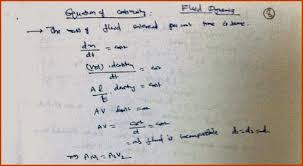 Equation of continuity
Fluid Dynamics
→ The mass of fluid entered per unit time is same.
dm/dt = cost
(Vol) . density / t = cost
Al/t . density = cost
AV =
as fluid is incompressible d₁=d₂=d.
⇒ A₁V₁ = A₂V₂